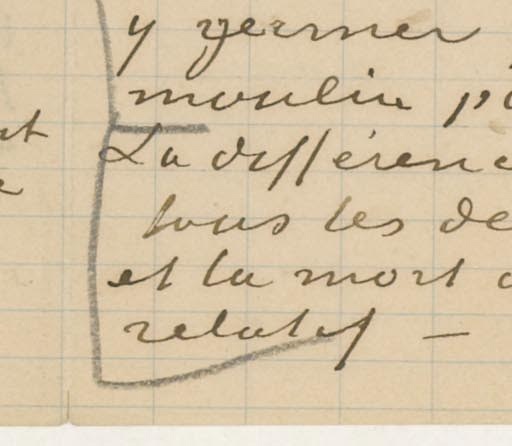 y germer
moulin po
La différenc
tous les de
et la mort
relatif —